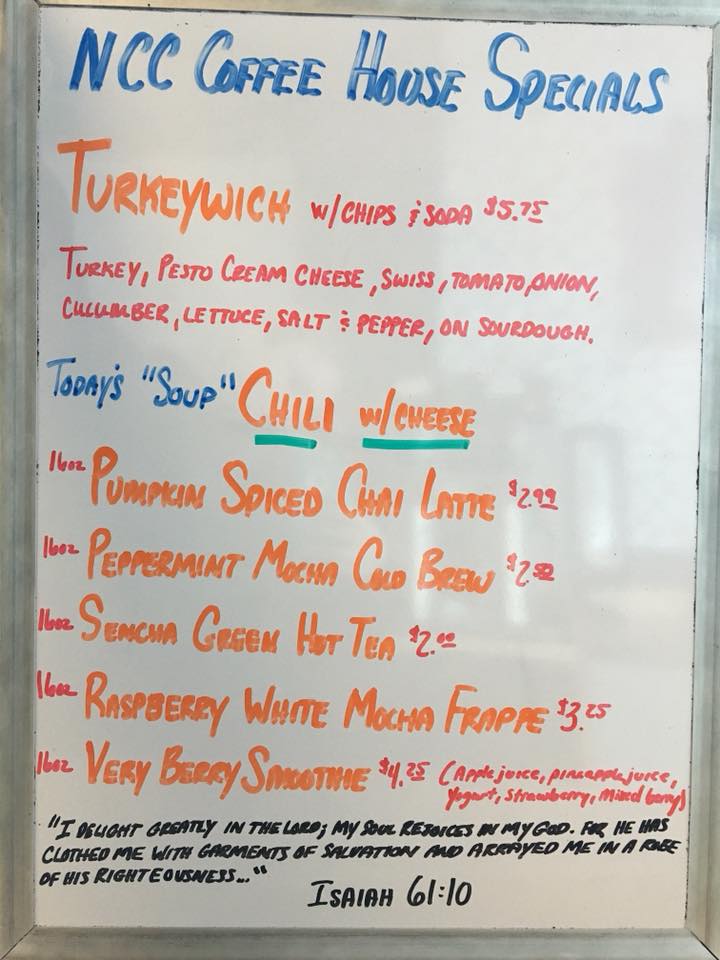 NCC COFFEE HOUSE SPECIALS
TURKEYWICH W/CHIPS & SODA $5.75
TURKEY, PESTO CREAM CHEESE, SWISS, TOMATO, ONION,
CUCUMBER, LETTUCE, SALT & PEPPER, ON SOURDOUGH.
TODAY'S "SOUP" CHILI W/CHEESE
16oz PUMPKIN SPICED CHAI LATTE $2.99
16oz PEPPERMINT MOCHA COLD BREW
16oz SENCHA GREEN HOT TEA $2.00
16oz RASPBERRY WHITE MOCHA FRAPPE $3.25
16oz VERY BERRY SMOOTHIE $4.25 (Apple juice, pineapple juice,
Yogurt, Strawberry, Mixed berry)
"I DELIGHT GREATLY IN THE LORD; MY SOUL REJOICES IN MY GOD. FOR HE HAS
CLOTHED ME WITH GARMENTS OF SALVATION AND ARRAYED ME IN A ROBE
OF HIS RIGHTEOUSNESS..."
ISAIAH 61:10